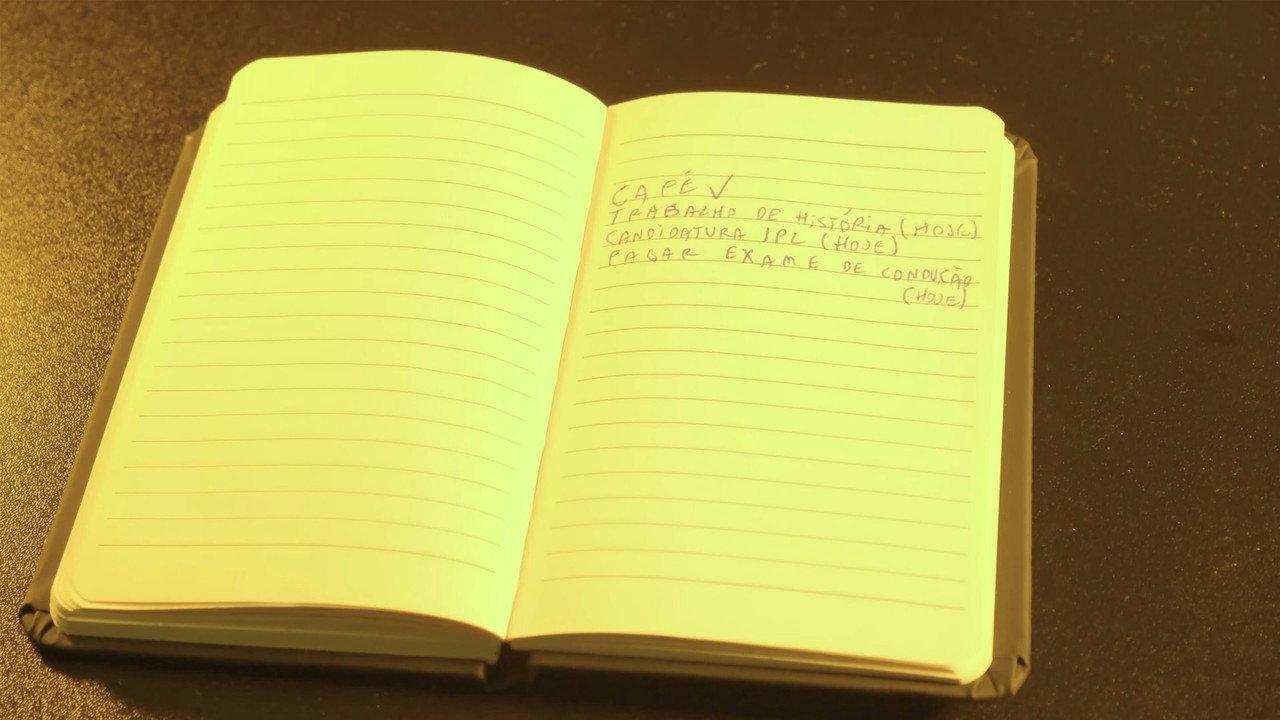 CAFÉ ✓
TRABALHO DE HISTÓRIA (HOJE)
CANDIDATURA IPL (HOJE)
PAGAR EXAME DE CONDUÇÃO
(HOJE)